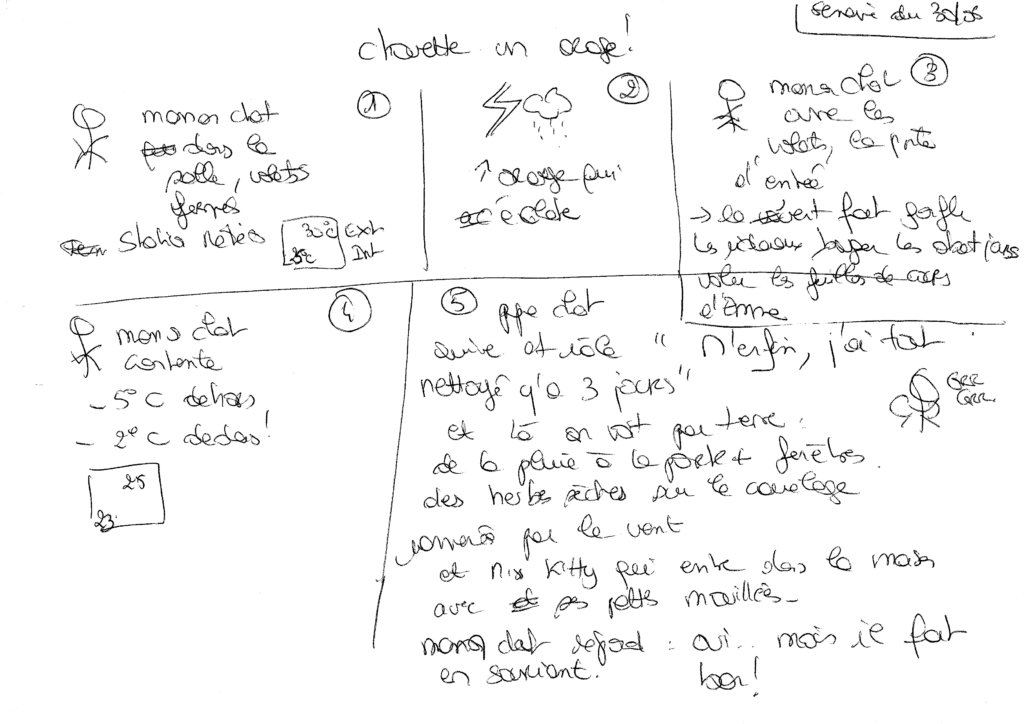 semaine du 30/06
chouette un orage!
1
maman chat
dans la
salle, volets
fermés
Station météo
30°C Ext
25°C Int
2
↑ orage qui
éclate
3
maman chat
ouvre les
volets, la porte
d'entrée
→ le vent fait gonfler
les rideaux bouger les abat jours
voler les feuilles de
d'Anne
4
maman chat
contente
- 5°C dehors
- 2°C dedans!
25
23
5 ppe chat
arrive et râle " M'enfin, j'ai tout
nettoyé y'a 3 jours"
GRR
GRR
et là on voit par terre :
de la pluie à la porte + fenêtres.
des herbes sèches sur le carrelage
ramenés par le vent
et Mix Kitty qui entre dans la maison
avec ses pattes mouillées -
maman chat répond : oui.. mais il fait
en souriant. bon!